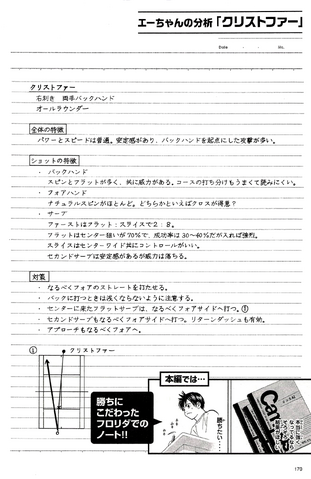 エーちゃんの分析「クリストファー」
Date ・ ・ No.
クリストファー
右利き 両手バックハンド
オールラウンダー
全体の特徴
パワーとスピードは普通。安定感があり、バックハンドを起点にした攻撃が多い。
ショットの特徴
・ バックハンド
スピンとフラットが多く、共に威力がある。コースの打ち分けもうまくて読みにくい。
・ フォアハンド
ナチュラルスピンがほとんど。どちらかといえばクロスが得意？
・ サーブ
ファーストはフラット：スライスで2：8。
フラットはセンター狙いが70％で、成功率は30～40％だが入れば強烈。
スライスはセンターワイド共にコントロールがいい。
セカンドサーブは安定感があるが威力は落ちる。
対策
・ なるべくフォアのストレートを打たせる。
・ バックに打つときは浅くならないように注意する。
・ センターに来たフラットサーブは、なるべくフォアサイドへ打つ。①
・ セカンドサーブもなるべくフォアサイドへ打つ。リターンダッシュも有効。
・ アプローチもなるべくフォアへ。
① クリストファー
本編では…
勝ちに
こだわった
フロリダでの
ノート!!
勝ちたい…
Can
本当に強く
なってるなら
179